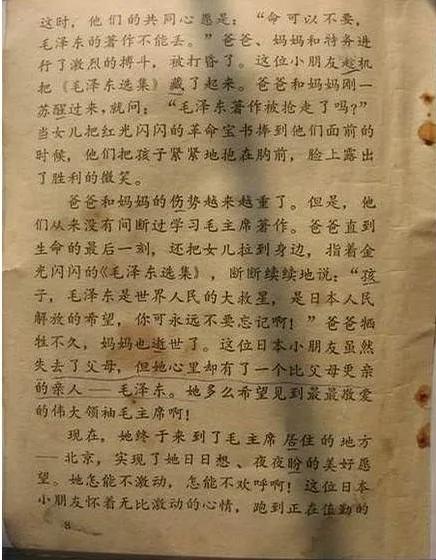 这时，他们的共同心愿是：“命可以不要，
毛泽东的著作不能丢。”爸爸、妈妈和特务进
行了激烈的搏斗，被打昏了。这位小朋友趁机
把《毛泽东选集》藏了起来。爸爸和妈妈刚一
苏醒过来，就问：“毛泽东著作被抢走了吗？”
当女儿把红光闪闪的革命宝书捧到他们面前的
时候，他们把孩子紧紧地抱在胸前，脸上露出
了胜利的微笑。
爸爸和妈妈的伤势越来越重了。但是，他
们从来没有间断过学习毛主席著作。爸爸直到
生命的最后一刻，还把女儿拉到身边，指着金
光闪闪的《毛泽东选集》，断断续续地说：“孩
子，毛泽东是世界人民的大救星，是日本人民
解放的希望，你可永远不要忘记啊！”爸爸牺
牲不久，妈妈也逝世了。这位日本小朋友虽然
失去了父母，但她心里却有了一个比父母更亲
的亲人——毛泽东。她多么希望见到最最敬爱
的伟大领袖毛主席啊！
现在，她终于来到了毛主席居住的地方
——北京，实现了她日日想、夜夜盼的美好愿
望。她怎能不激动，怎能不欢呼啊！这位日本
小朋友怀着无比激动的心情，跑到正在值勤的
8